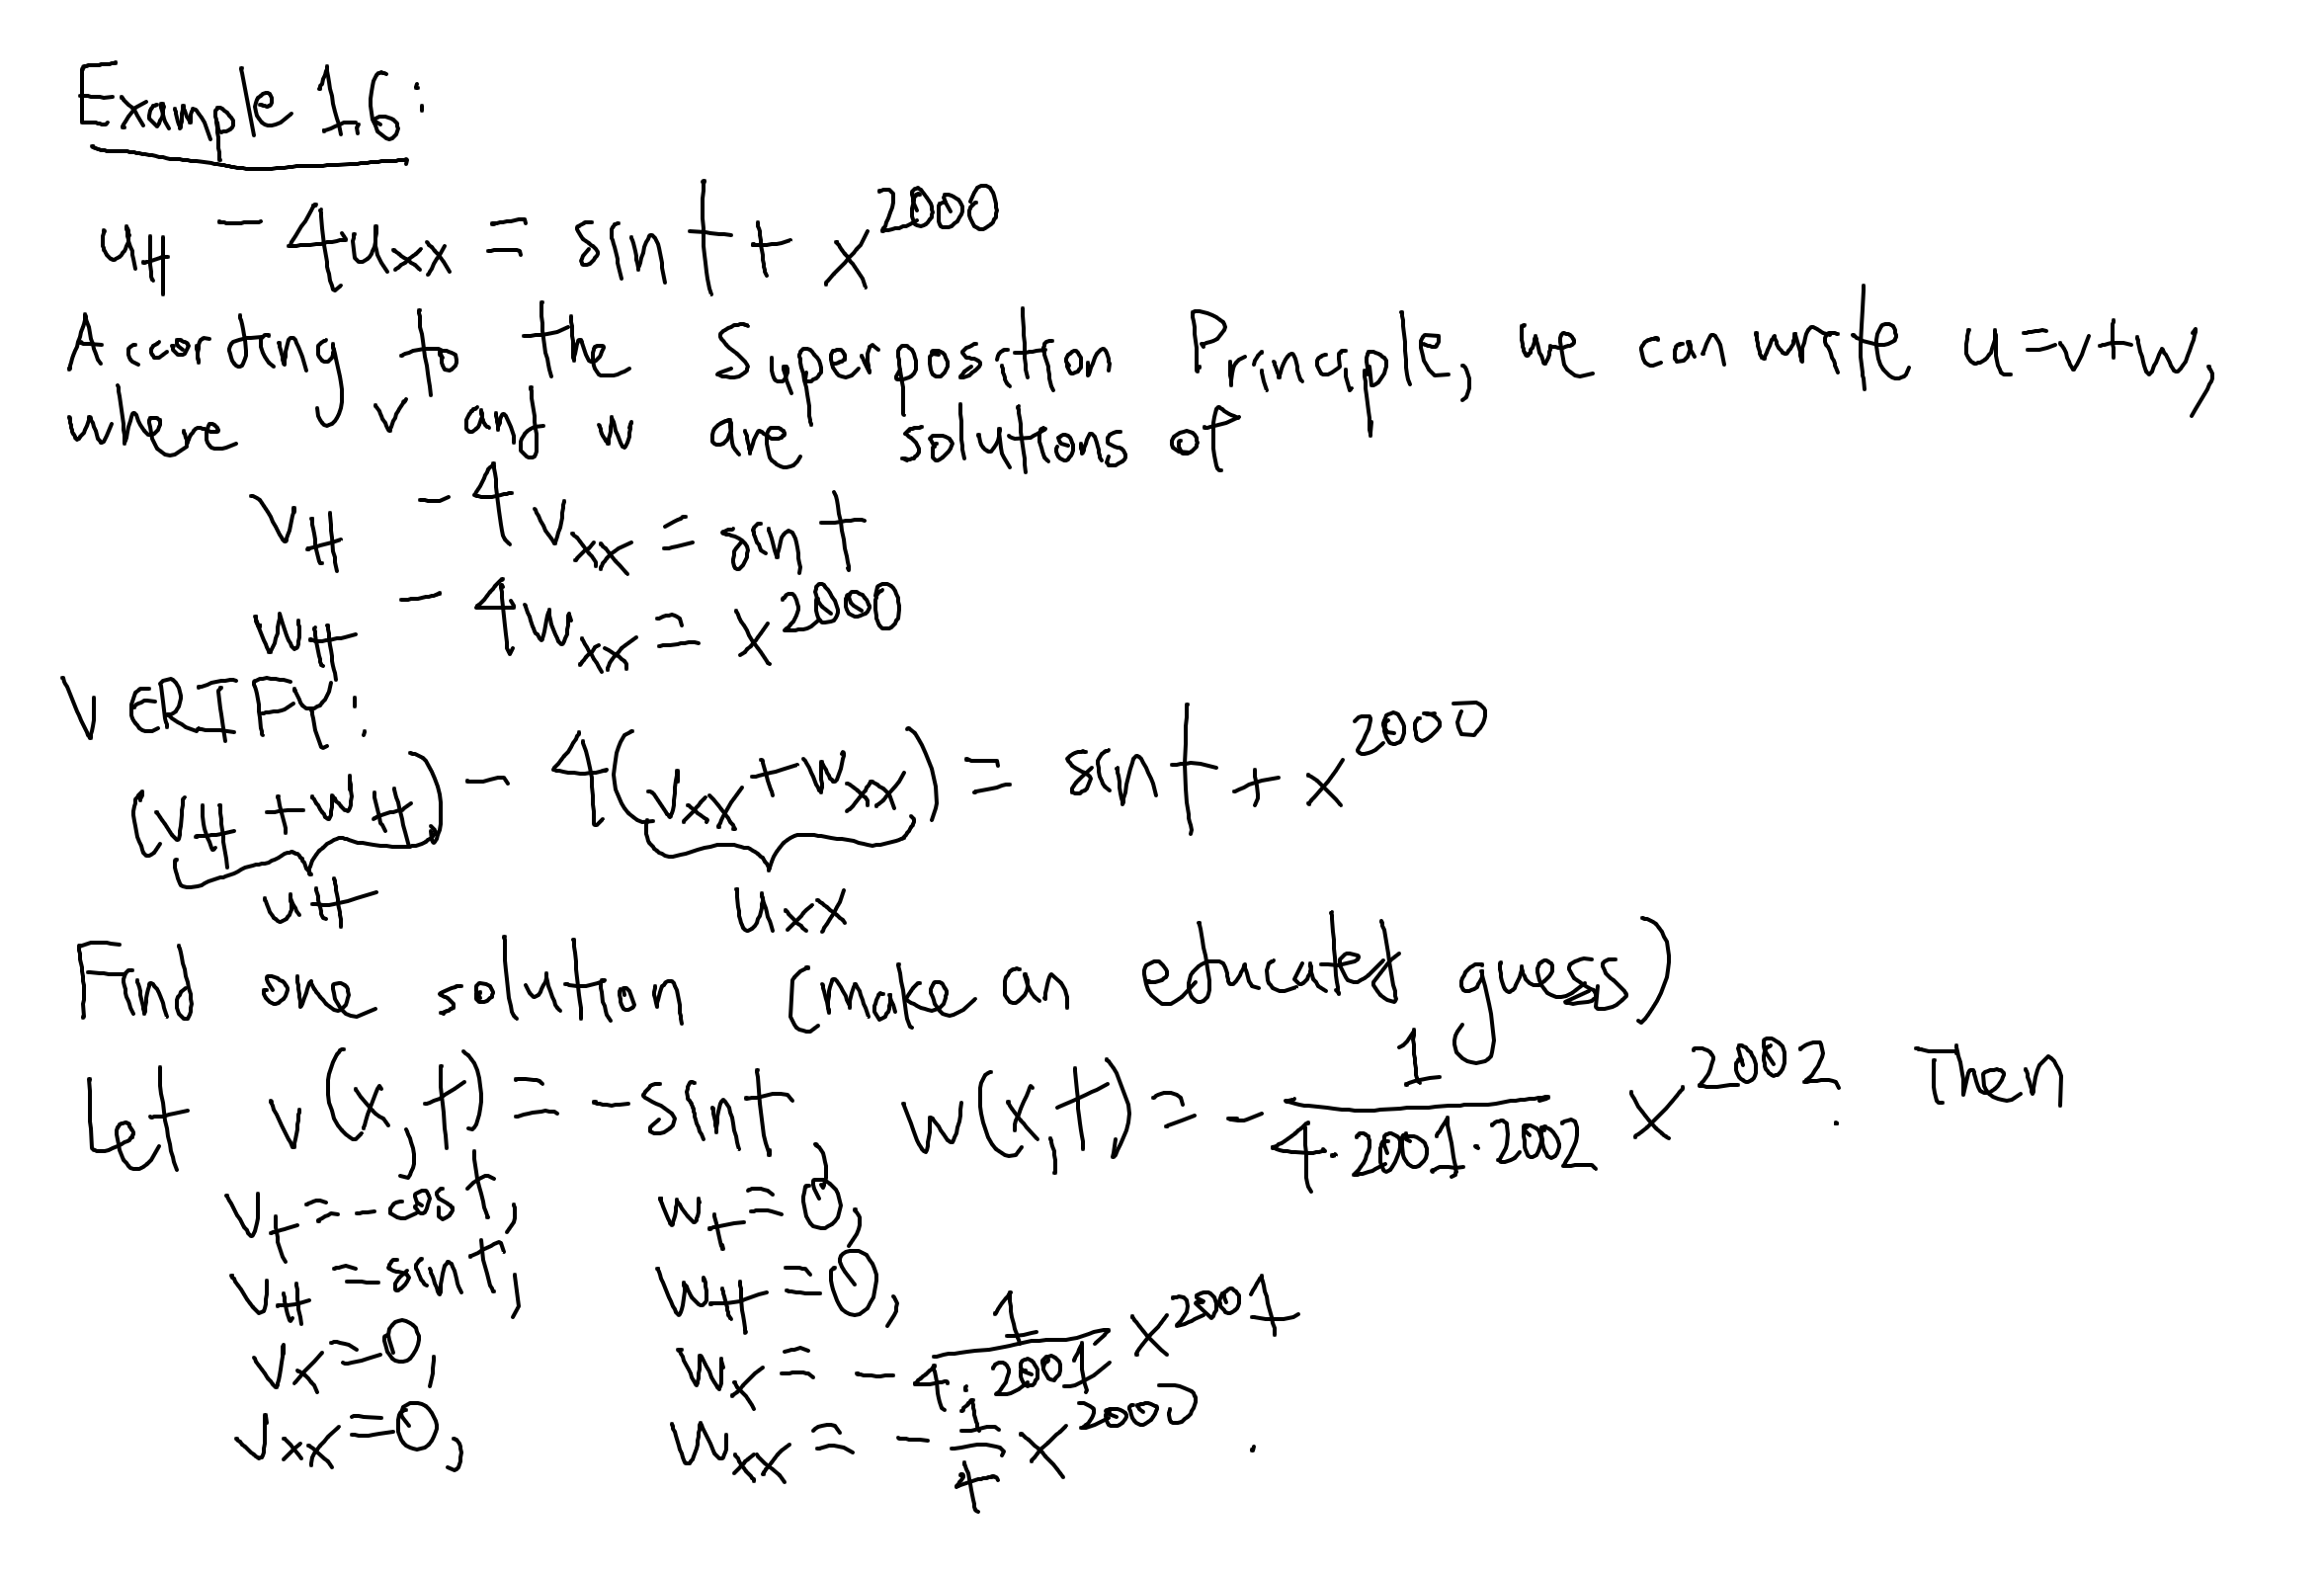 Example 1.6:
u_tt - 4u_xx = sin t + x^2000
According to the Superposition Principle, we can write u = v + w,
where v and w are solutions of
v_tt - 4v_xx = sin t
w_tt - 4w_xx = x^2000
VERIFY:
(v_tt + w_tt) - 4(v_xx + w_xx) = sin t + x^2000
u_tt u_xx
Find one solution (make an educated guess)
Let v(x,t) = -sin t, w(x,t) = -1/(4·2001·2002) x^2002. Then
v_t = -cos t, w_t = 0,
v_tt = sin t, w_tt = 0,
v_x = 0, w_x = -1/(4·2001) x^2001
v_xx = 0, w_xx = -1/4 x^2000.